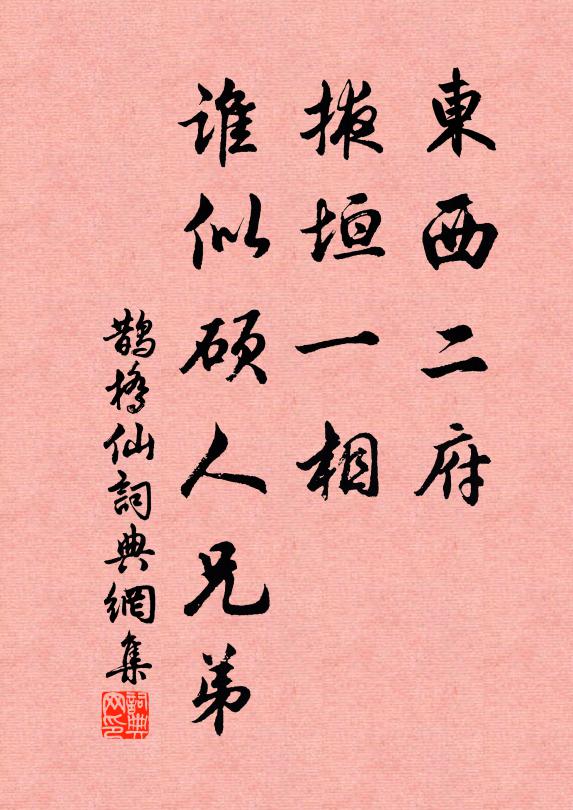 東西二府
掖垣一相
谁似硕人兄弟
鵲橋仙詞典網集
詞典网印